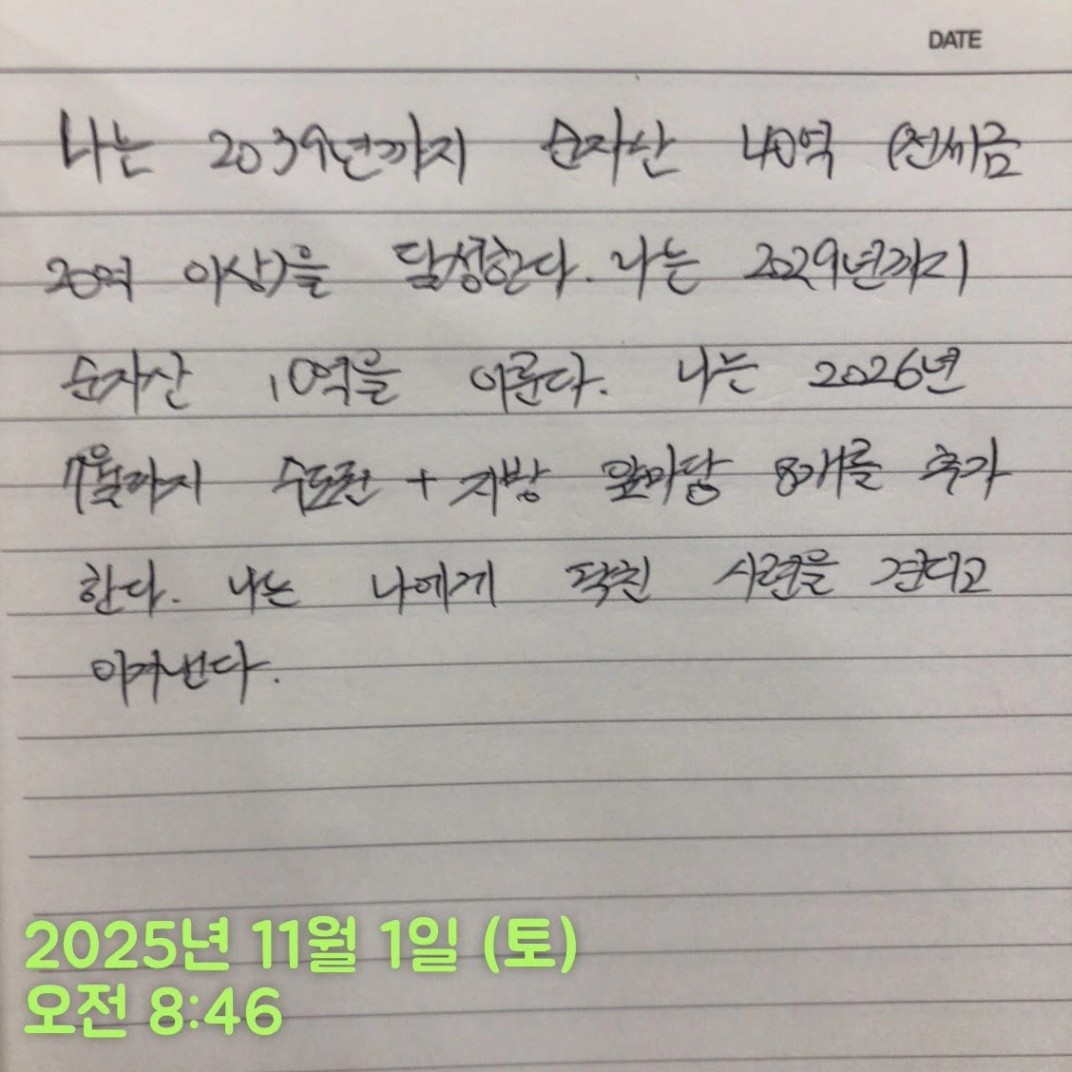 DATE
나는 2039년까지 순자산 40억 (전세금
20억 이상)을 달성한다. 나는 2029년까지
순자산 10억을 이룬다. 나는 2026년
7월까지 수도권 + 지방 앞마당 8개를 추가
한다. 나는 나에게 닥친 시련을 견디고
이겨낸다.
2025년 11월 1일 (토)
오전 8:46